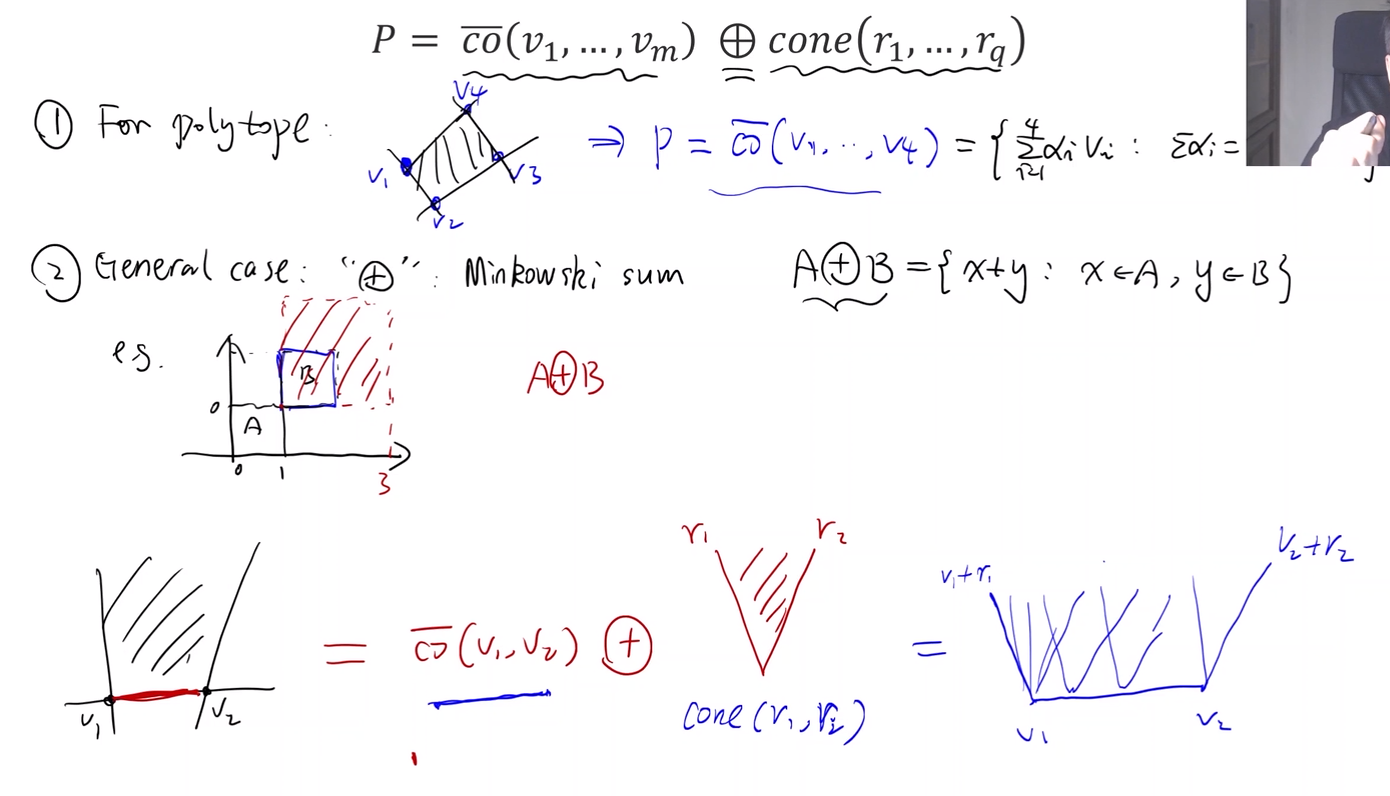 P = c̅o̅(v₁, …, vₘ) ⊕ cone(r₁, …, r_q)
① For polytope:
v4
v1
v2
v3
⇒ P = c̅o̅(v₁, .., v4) = { Σ⁴ᵢ₌₁ αᵢ vᵢ : Σαᵢ =
② General case: "⊕": Minkowski sum
A⊕B = { x+y : x ∈ A, y ∈ B }
eg.
B
0
A
0 1 3
A⊕B
v1 v2
= c̅o̅(v₁, v₂) ⊕
r1 r2
cone(r₁, r₂)
=
v₁+r₁
v₂+r₂
v1 v2